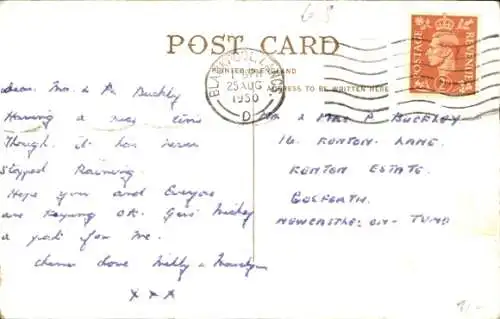 68
POST CARD
PRINTED IN ENGLAND
ADDRESS TO BE WRITTEN HERE
BLACKPOOL. LANCS
25 AUG
1950
D
POSTAGE REVENUE
2D
Dear Mr & Buckley
Having a nice time
Though it has never
Stopped Raining
Hope you and Everyone
are Keeping OK. Give Mickey
a pat for me.
love Milly & Marilyn
x x x
Mr & Mrs P BUCKLEY
16. KENTON LANE.
KENTON ESTATE.
GOSFORTH.
NEWCASTLE-ON-TYNE